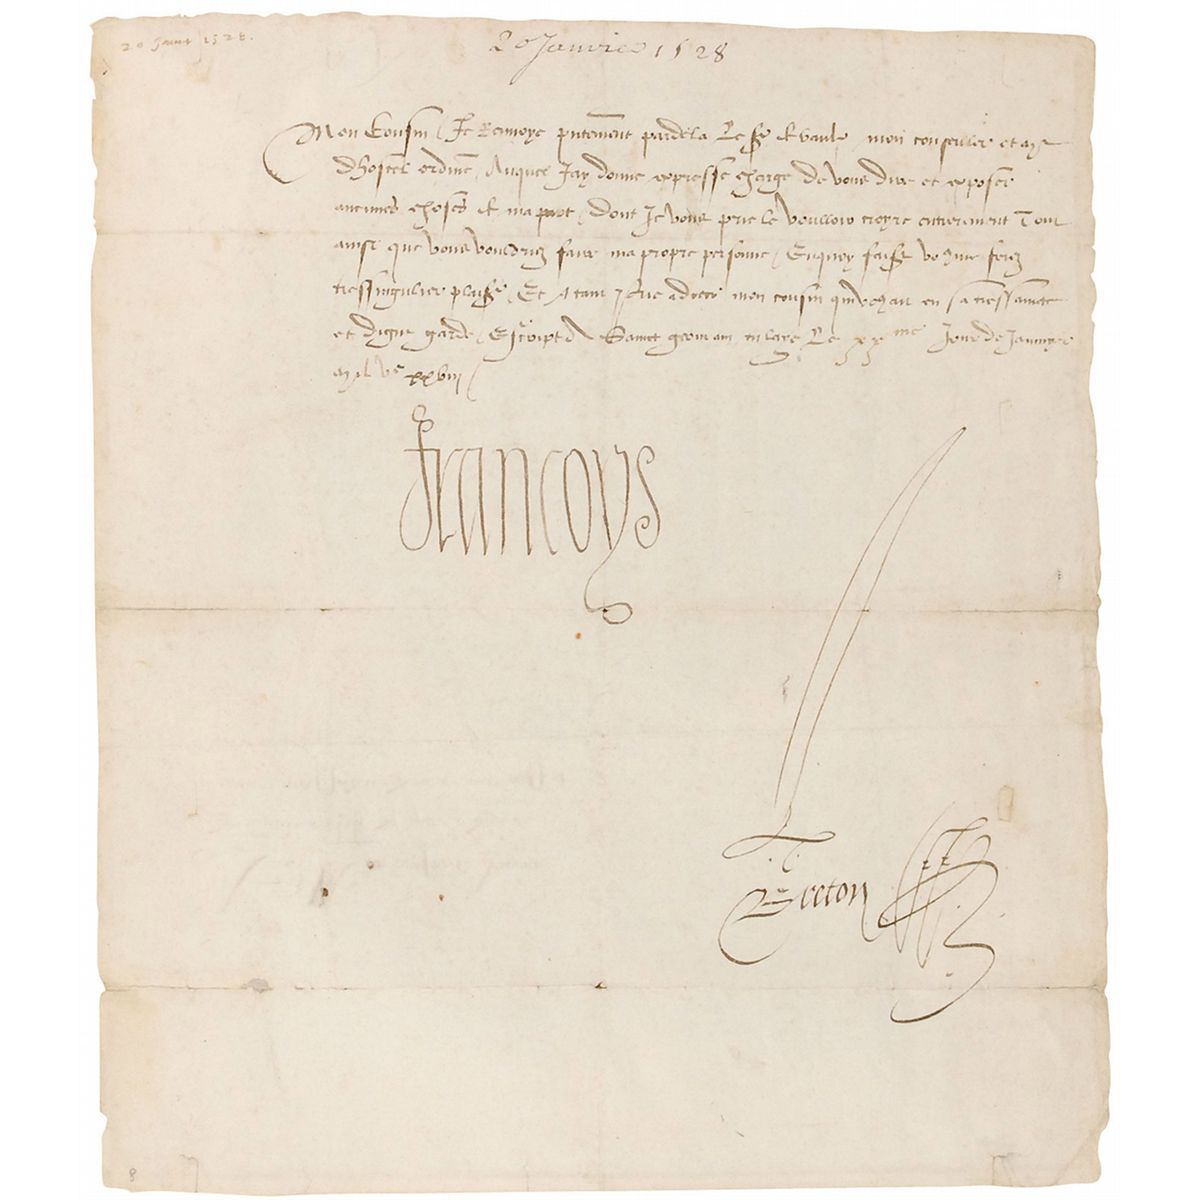 20 Janv 1528.
20 Janvier 1528
Mon Cousin Je Renvoye pntement pardela Le Sr de vaulx mon conseiller et me
dhostel ordine, Auquel Jay donne expresse charge de vous dire et exposer
aucunes choses de ma part, dont Je vous prie le voulloir croyre entierement Tout
ainsi que vous vouldriez faire ma propre personne, Enquoy faisst vo9 me ferez
tressingulier plaisr, Et A tant prie a dieu mon cousin quil vo9 ait en sa tressaincte
et digne garde, Escript a Sainct germain en laye Le xxme Jour de Janvyer
mil vc xxviij
Francoys
Breton
8